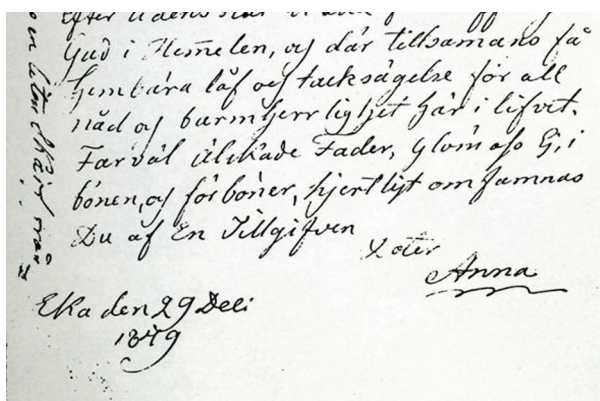 Gud i Hemelen, og där tillsamans få
hembära låf og tacksägelse för all
nåd og barmherrlighet här i lifvet.
Farväl älskade Fader, glöm oss Ej, i
bönen, og förböner, hjertligt omfamnas
Du af En Tillgifven
Doter
Anna
Eka den 29 Deci
1879